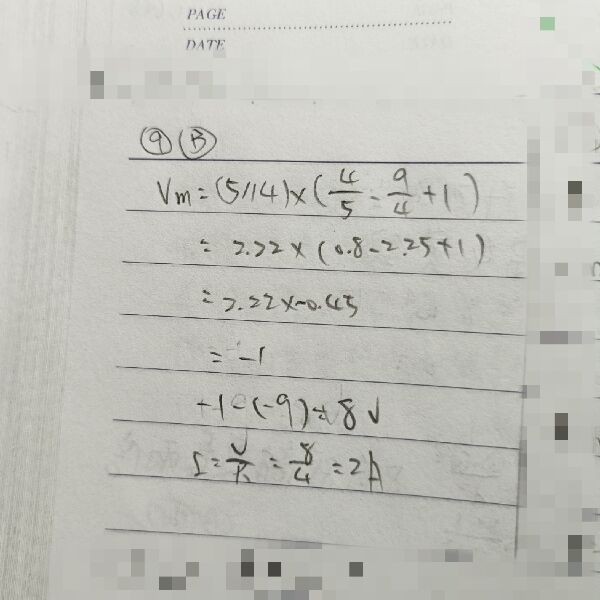 PAGE
DATE
9 B
Vm = (5//4) × (4/5 - 9/4 + 1)
= 2.22 × (0.8 - 2.25 + 1)
= 2.22 × -0.45
= -1
-1 - (-9) = 8V
I = V/R = 8/4 = 2A